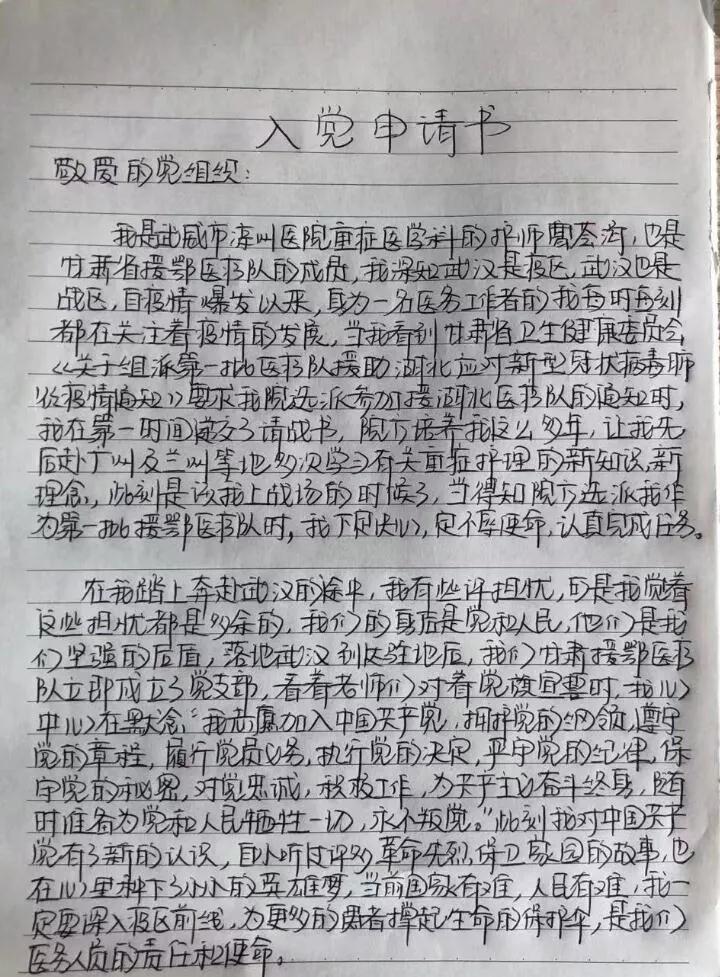 入党申请书
敬爱的党组织：
我是武威市凉州医院重症医学科的护师，也是
甘肃省援鄂医疗队的成员，我深知武汉是疫区，武汉也是
战区，自疫情爆发以来，身为一名医务工作者的我每时每刻
都在关注着疫情的发展，当我看到甘肃省卫生健康委员会
《关于组派第一批医疗队援助湖北应对新型冠状病毒肺
炎疫情通知》要求我院选派参加援湖北医疗队的通知时，
我在第一时间递交了请战书，院方培养我这么多年，让我先
后赴广州及兰州等地多次学习有关重症护理的新知识，新
理念，此刻是该我上战场的时候了，当得知院方选派我作
为第一批援鄂医疗队时，我下定决心，定不辱使命，认真完成任务。
在我踏上奔赴武汉的途中，我有些许担忧，可是我觉着
这些担忧都是多余的，我们的身后是党和人民，他们是我
们坚强的后盾，落地武汉到达驻地后，我们甘肃援鄂医疗
队立即成立了党支部，看着老师们对着党旗宣誓时，我心
中心在默念“我志愿加入中国共产党，拥护党的纲领，遵守
党的章程，履行党员义务，执行党的决定，严守党的纪律，保
守党的秘密，对党忠诚，积极工作，为共产主义奋斗终身，随
时准备为党和人民牺牲一切，永不叛党。”此刻我对中国共产
党有了新的认识，自小听过许多革命先烈，保卫家园的故事，也
在心里种下了小小的英雄梦，当前国家有难，人民有难，我一
定要深入疫区前线，为更多的患者撑起生命的保护伞，是我们
医务人员的责任和使命。